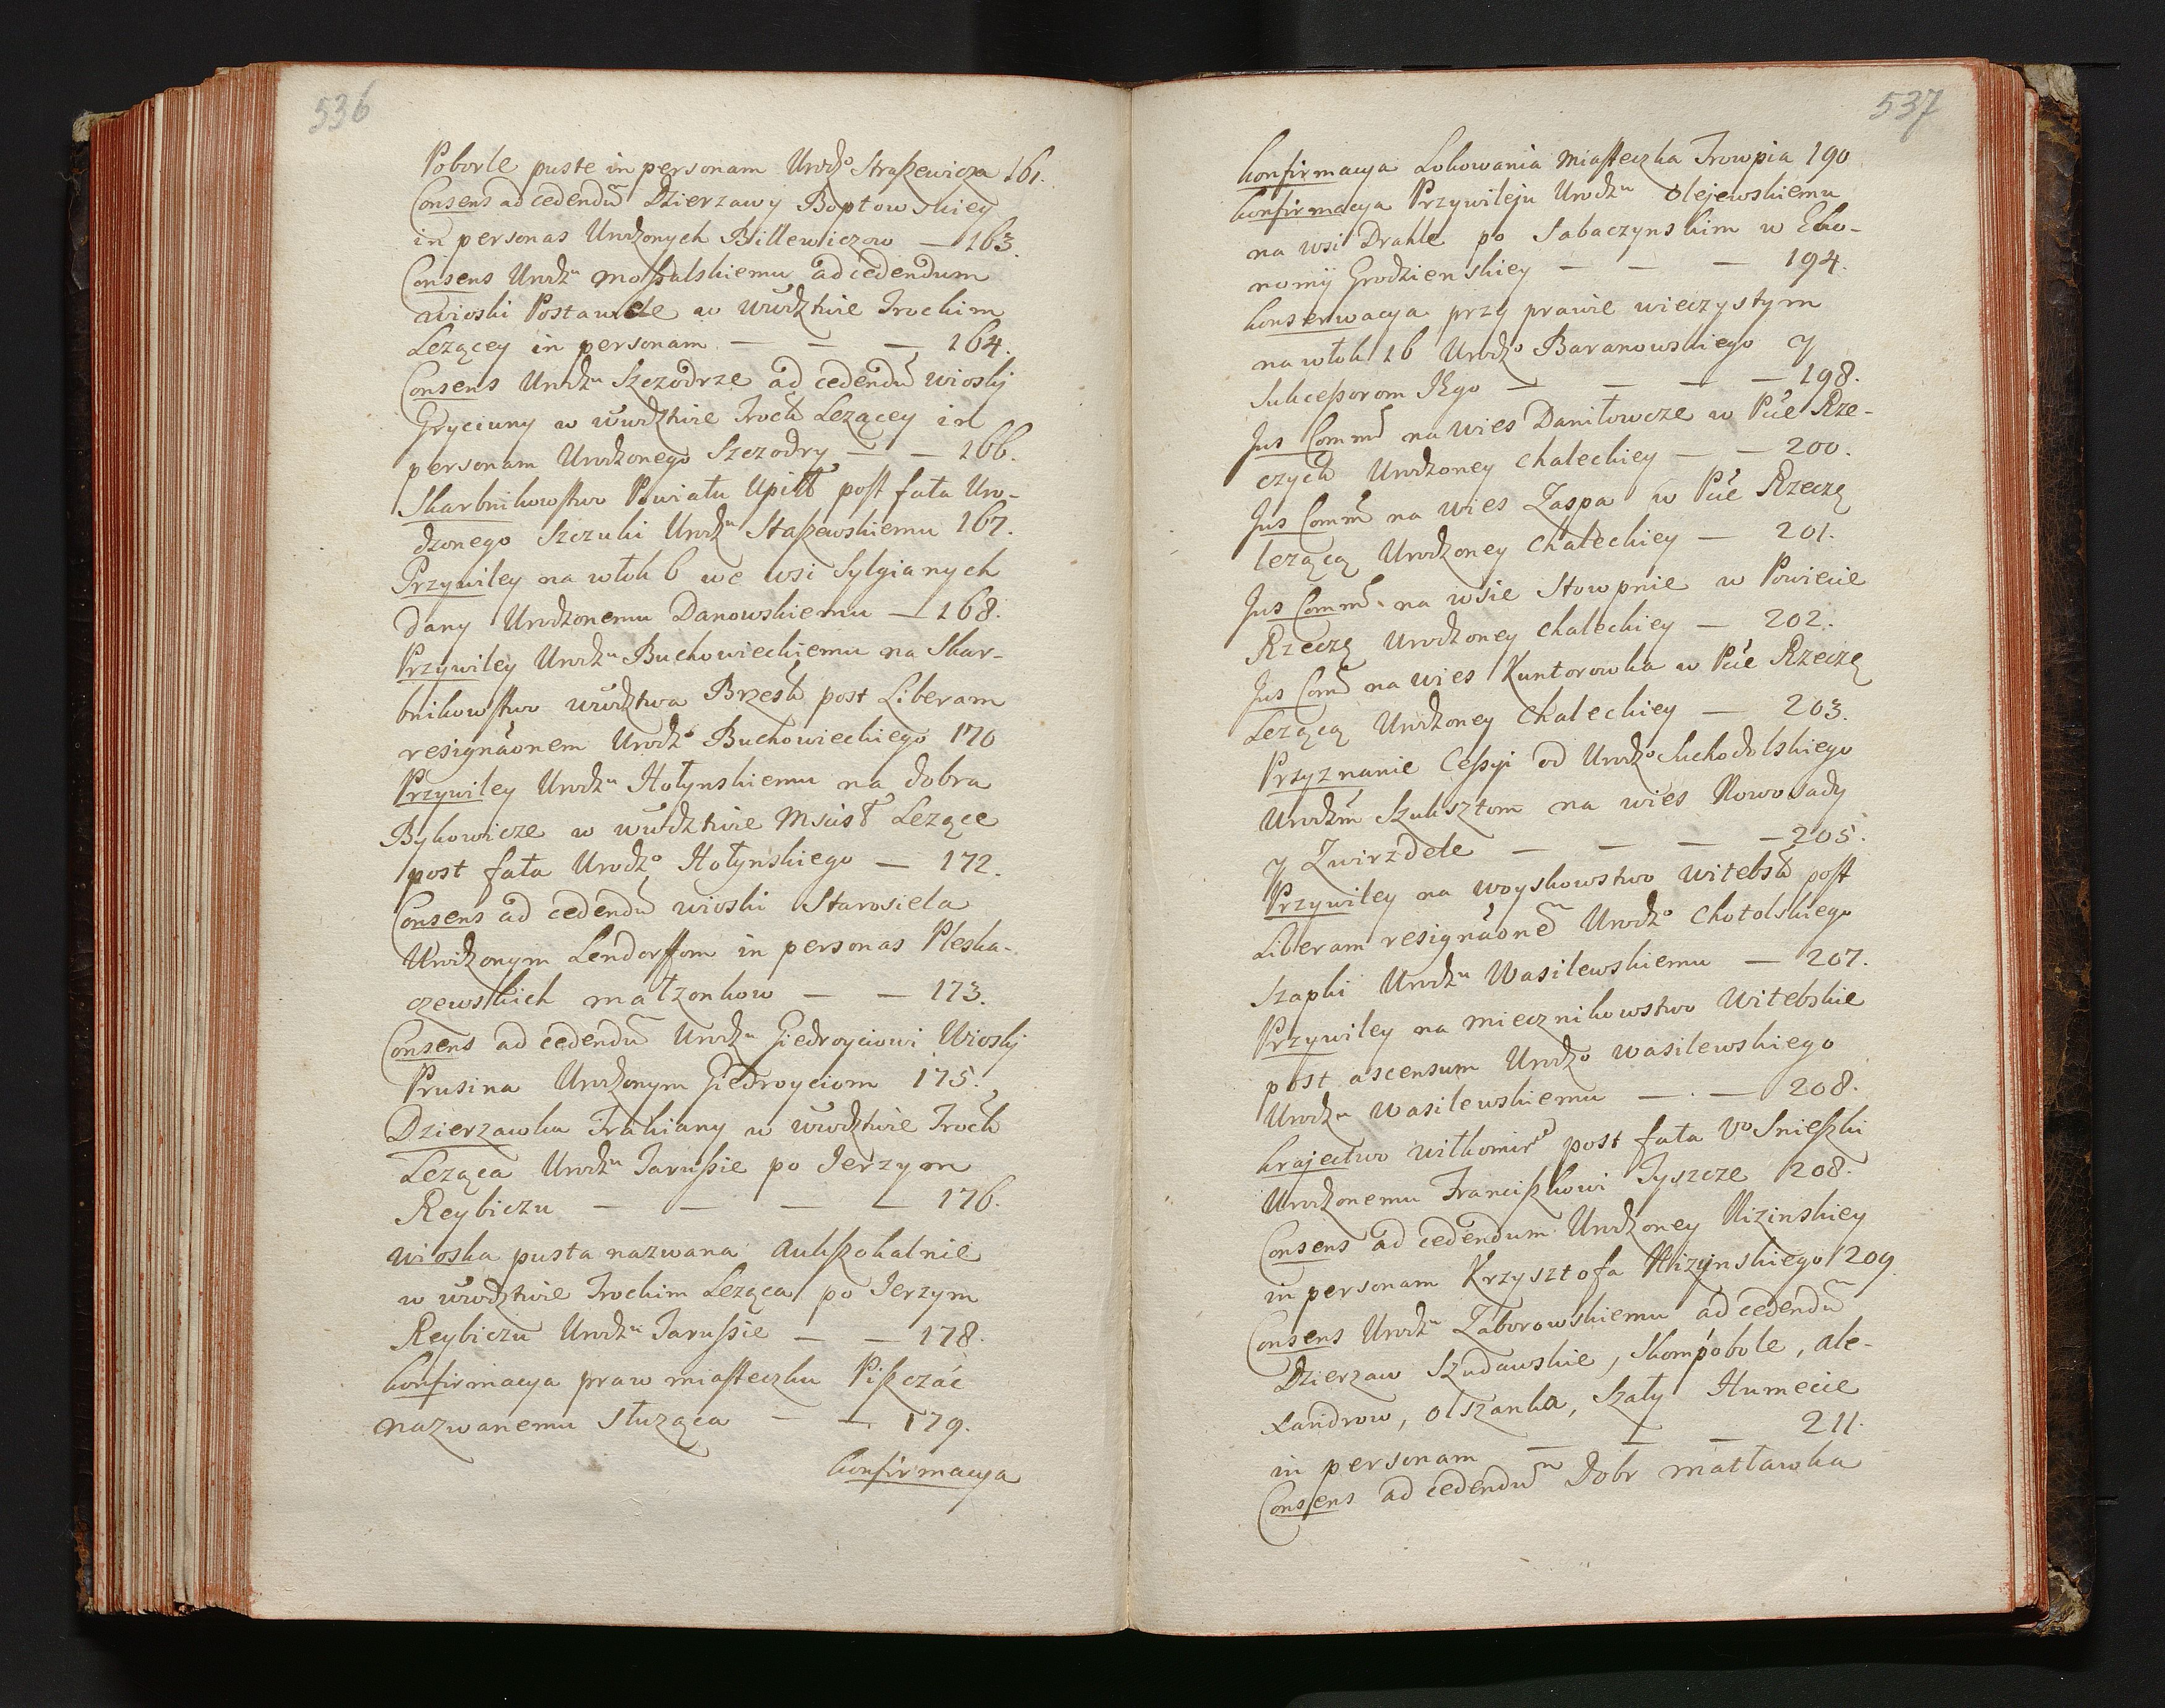 536
Poborle puste in personam Urodzo Straszewicza 161.
Consens ad cedendũ Dzierzawy Boptowskiey
in personas Urodzonych Billewiczow — 163.
Consens Urodzu Moszalskiemu ad cedendum
wioski Postawele w wwdztwie Trockim
Leząceÿ in personam — — — 164.
Consens Urodzu Szczodrze ad cedendũ wioski
Gryciuny w wwdztwie Trock Lezącey in
personam Urodzonego Szczodry — — 166.
Skarbnikowstwo Powiatu Upitt post fata Uro-
dzonego Szczuki Urodzu Staszewskiemu 167.
Przywiley na włok 6 we wsi Sylgianych
dany Urodzonemu Danowskiemu — 168.
Przywiley Urodzu Buchowieckiemu na Skar-
bnikowstwo wwdztwa Brzesk post Liberam
resignãonem Urodzo Buchowieckiego 170
Przywiley Urodzu Hołynskiemu na dobra
Bykowicze w wwdztwie Mscisł Lezące
post fata Urodzo Hołynskiego — 172.
Consens ad cedendũ wioski Starosiela
Urodzonym Lendorffom in personas Pleska-
czewskich małzonkow — — 173.
Consens ad cedendũ Urodzu Giedroyciowi Wioski
Prusina Urodzonym Giedroyciom 175.
Dzierzawka Trakiany w wwdztwie Trock
Leząca Urodzu Jarussie po Jerzym
Reybiczu — — — — 176.
wioska pusta nazwana Aukszokalnie
w wwdztwie Trockim Leząca po Jerzym
Reybiczu Urodzu Jarussie — — 178.
konfirmacya praw miasteczku Piszczać
nazwanemu słuząca — — 179.
konfirmacya
537
konfirmacya Lokowania Miasteczka Trowpia 190
konfirmacya Przywileju Urodzu Olejewskiemu
na wsi Drahle po Sabaczynskim w Eko-
nomÿ Grodzienskiey — — — 194.
konserwacya przy prawie wieczystym
na włok 16 Urodzo Baranowskiego y
Sukcessorom Jego — — — — 198.
Jus Comm̃ na wies Daniłowcze w Pcie Rze-
czych Urodzoney Chaleckiey — — 200.
Jus Comm̃ na wies Zaspa w Pcie Rzeczę
lezącą Urodzoney Chaleckiey — 201.
Jus Comm̃ na wsie Stowpnie w Powiecie
Rzeczę Urodzoney Chaleckiey — 202.
Jus Com̃ na wies Kuntorowka w Pcie Rzeczę
Lezącą Urodzoney Chaleckiey — 203.
Przyznanie Cessyi od Urodzo Suchodolskiego
Urodzm Szuksztom na wies Nowosady
y Zwirzdele — — — — 205.
Przywiley na woyskowstwo witebsk post
Liberam resignãonẽ Urodzo Chotolskiego
Szapki Urodzu Wasilewskiemu — 207.
Przywiley na miecznikowstwo Witebskie
post ascensum Urodzo Wasilewskiego
Urodzu Wasilewskiemu — . — 208.
krajectwo wiłkomirs post fata Uo Snieszki
Urodzonemu Franciszkowi Tyszcze 208.
Consens ad cedendum Urodzoney Nizinskiey
in personam Krzysztofa Nizynskiego 209.
Consens Urodzu Zaborowskiemu ad cedendũ
Dzierzaw Szudawskie, Skompobole, Ale-
xandrow, Olszanka, Szały Humecie
in personam — — — 211.
Consens ad cedendũ Dobr Matławka